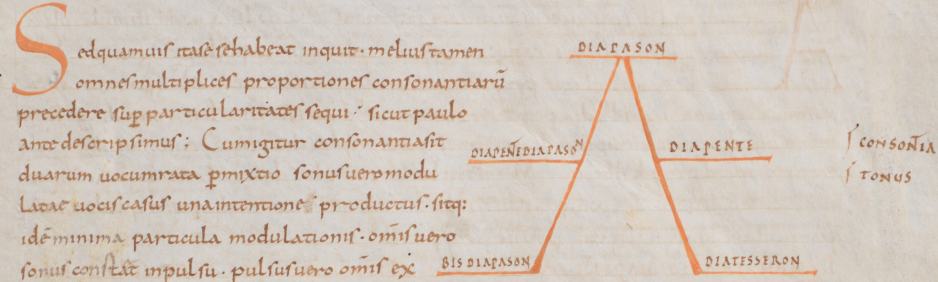 Sedquamuis itasesehabeat inquit· meliustamen
omnesmultiplices proportiones consonantiarū
precedere sup̱particularitates sequi· sicut paulo
antedescripsimus; Cumigitur consonantiasit
duarum uocumrata p̱mixtio sonusueromodu
latae uociscasus unaintentione productus· sitq:
idēminima particula modulationis· om̅isuero
sonus constat inpulsu· pulsusuero om̅is ex
DIAPASON
DIAPEN̅EDIAPASON
DIAPENTE
BISDIAPASON
DIATESSERON
ſ CONSON̅IA
ſ TONUS